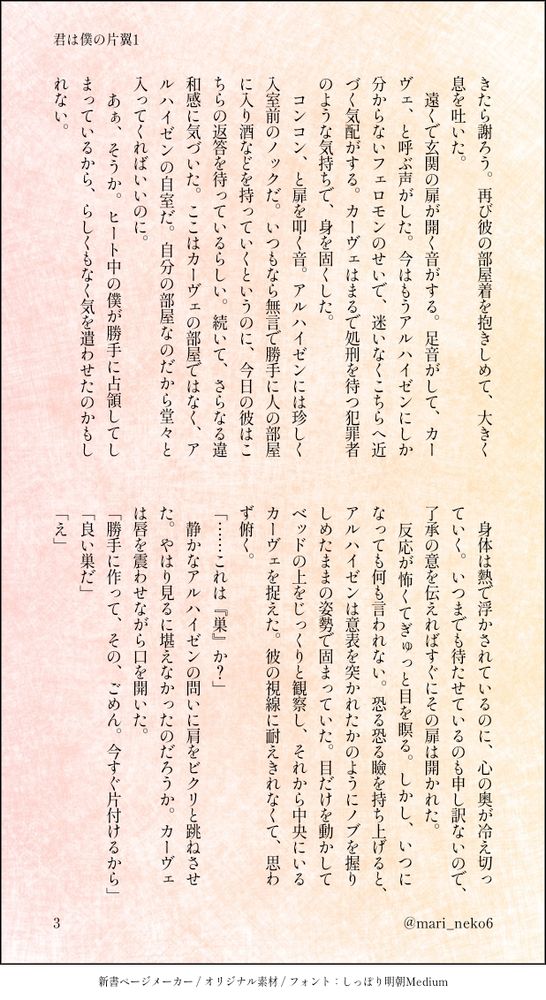 君は僕の片翼1
きたら謝ろう。再び彼の部屋着を抱きしめて、大きく
息を吐いた。
　遠くで玄関の扉が開く音がする。足音がして、カー
ヴェ、と呼ぶ声がした。今はもうアルハイゼンにしか
分からないフェロモンのせいで、迷いなくこちらへ近
づく気配がする。カーヴェはまるで処刑を待つ犯罪者
のような気持ちで、身を固くした。
　コンコン、と扉を叩く音。アルハイゼンには珍しく
入室前のノックだ。いつもなら無言で勝手に人の部屋
に入り酒などを持っていくというのに、今日の彼はこ
ちらの返答を待っているらしい。続いて、さらなる違
和感に気づいた。ここはカーヴェの部屋ではなく、ア
ルハイゼンの自室だ。自分の部屋なのだから堂々と
入ってくればいいのに。
　あぁ、そうか。ヒート中の僕が勝手に占領してし
まっているから、らしくもなく気を遣わせたのかもし
れない。
　身体は熱で浮かされているのに、心の奥が冷え切っ
ていく。いつまでも待たせているのも申し訳ないので、
了承の意を伝えればすぐにその扉は開かれた。
　反応が怖くてぎゅっと目を瞑る。しかし、いつに
なっても何も言われない。恐る恐る瞼を持ち上げると、
アルハイゼンは意表を突かれたかのようにノブを握り
しめたままの姿勢で固まっていた。目だけを動かして
ベッドの上をじっくりと観察し、それから中央にいる
カーヴェを捉えた。彼の視線に耐えきれなくて、思わ
ず俯く。
「……これは『巣』か？」
　静かなアルハイゼンの問いに肩をビクリと跳ねさせ
た。やはり見るに堪えなかったのだろうか。カーヴェ
は唇を震わせながら口を開いた。
「勝手に作って、その、ごめん。今すぐ片付けるから」
「良い巣だ」
「え」
3
@mari_neko6
新書ページメーカー / オリジナル素材 / フォント：しっぽり明朝Medium